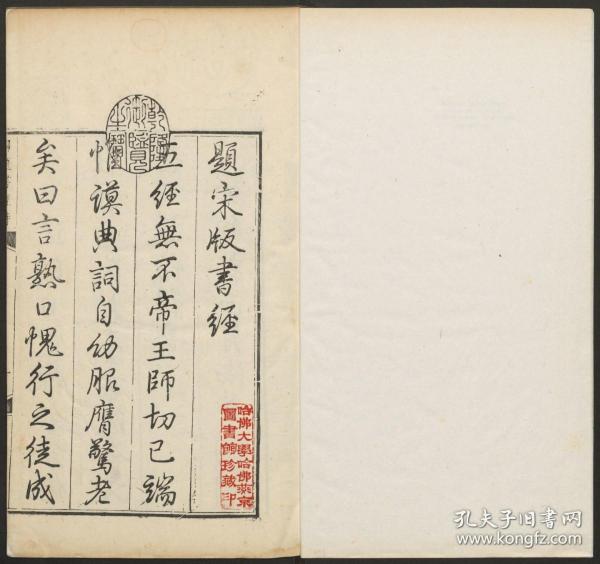 乾隆御覽之寶
題宋版書經
五經無不帝王師切已端
惟謨典詞自幼服膺驚老
矣曰言熟口愧行之徒成
哈佛大學哈佛燕京
圖書館珍藏印
孔夫子旧书网
www.kongfz.com